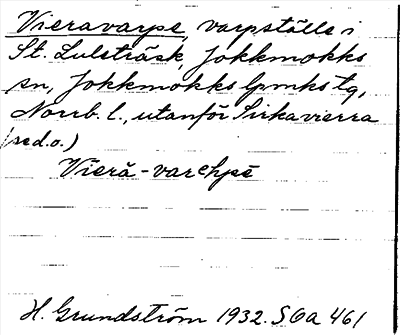 Vieravarpe, varpställe i
St. Luleträsk, Jokkmokks
sn, Jokkmokks lpmks tg,
Norrb. l., utanför Sirkavierra
(se d. o.)
Vierā-varehpē
H. Grundström 1932. SOa 461